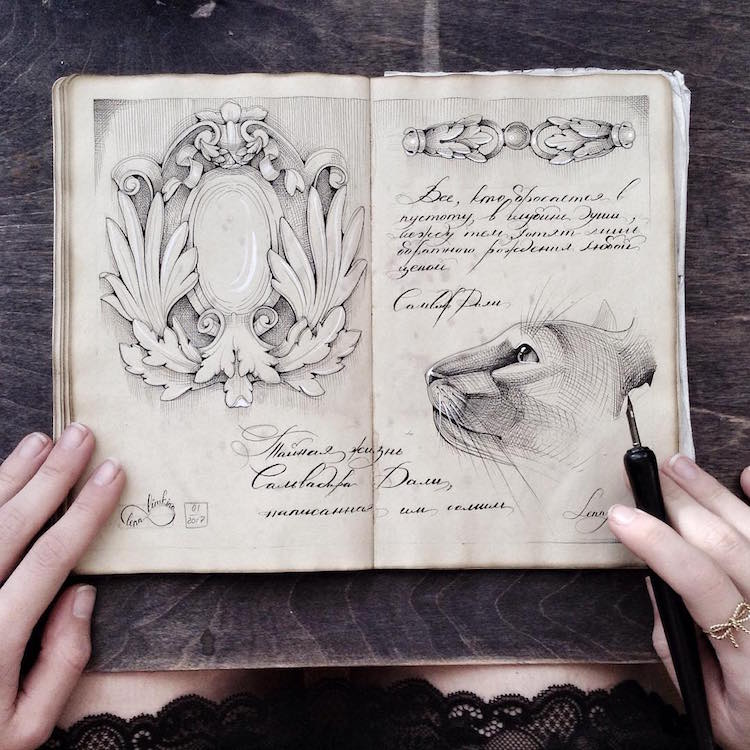 Все, кто бросается в
пустоту, в глубине души,
между тем, хотят лишь
обратного рождения любой
ценой
Сальвадор Дали
Тайная жизнь
Сальвадора Дали,
написанная им самим
Lena Limkina
01
2017
Lenn